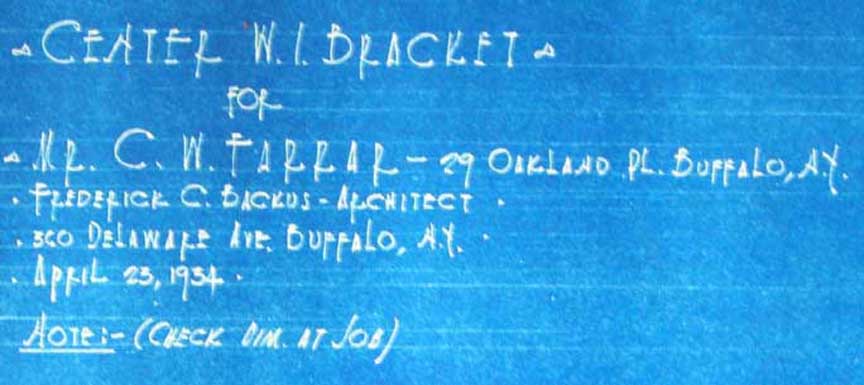 CENTER W.I. BRACKET
FOR
MR. C. W. FARRAR - 29 OAKLAND PL. BUFFALO, N.Y.
. FREDERICK C. BACKUS - ARCHITECT .
. 360 DELAWARE AVE. BUFFALO, N.Y. .
. APRIL 23, 1934 .
NOTE:- (CHECK DIM. AT JOB)